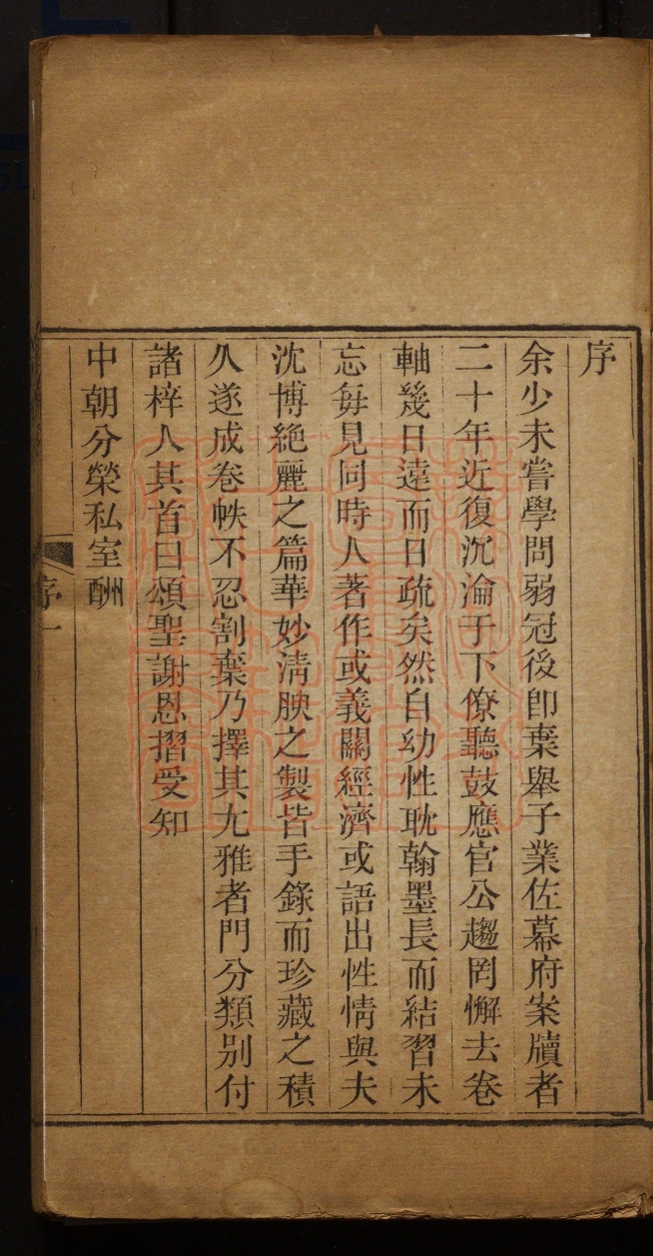 序
余少未嘗學問弱冠後卽棄舉子業佐幕府案牘者
二十年近復沉淪于下僚聽鼓應官公趨罔懈去卷
軸幾日遠而日疏矣然自幼性耽翰墨長而結習未
忘每見同時人著作或義關經濟或語出性情與夫
沈博絶麗之篇華妙淸腴之製皆手錄而珍藏之積
久遂成卷帙不忍割棄乃擇其尤雅者門分類别付
諸梓人其首曰頌聖謝恩摺受知
中朝分榮私室酬
序 一